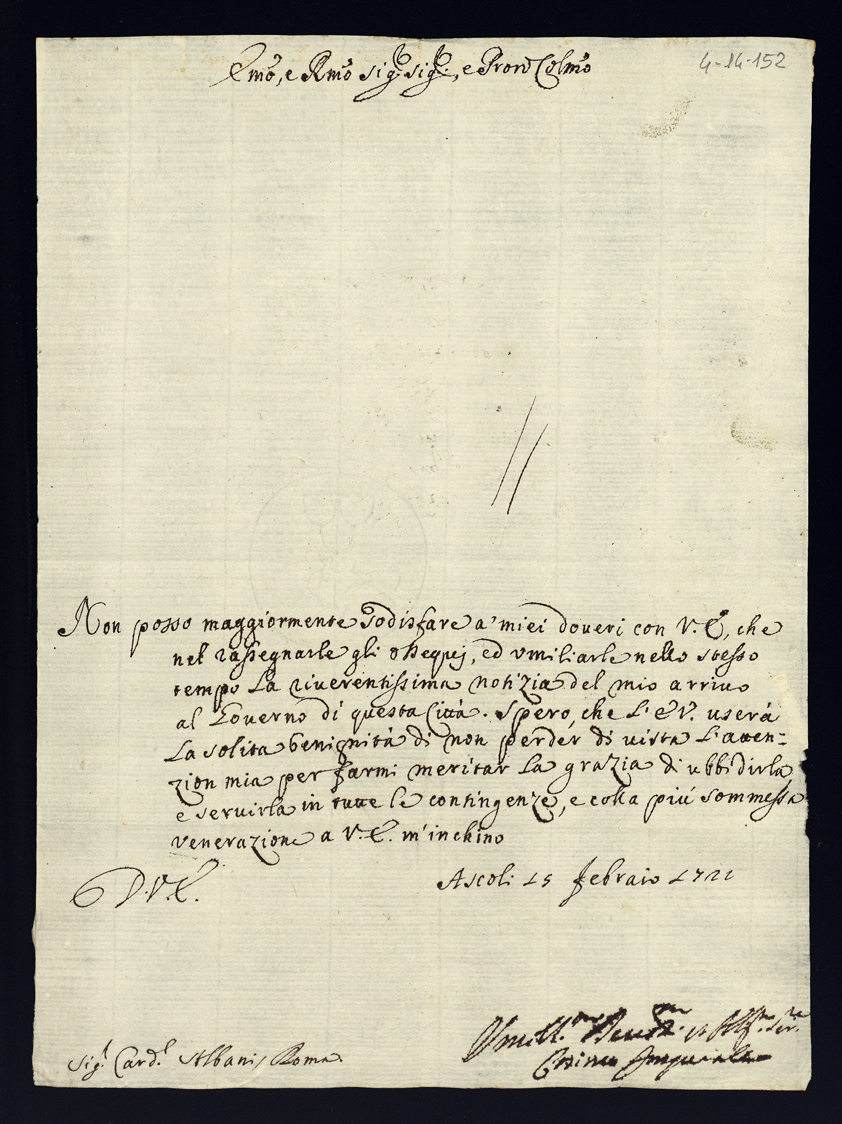 Emo, e Rmo Sig.r Sig.r, e Pron Colmo
4-14-152
Non posso maggiormente sodisfare a' miei doveri con V.E., che
nel rassegnarle gli ossequj, ed umiliarle nello stesso
tempo la riverentissima notizia del mio arrivo
al Governo di questa Città. Spero, che l'E.V. userà
la solita benignità di non perder di vista l'atten=
zion mia per farmi meritar la grazia di ubbidirla,
e servirla in tutte le contingenze, e colla più sommessa
venerazione a V.E. m'inchino
D.V.E.
Ascoli 15 Febraio
Sig.r Card.l Albani, Roma.
Umill.mo
Imperiale